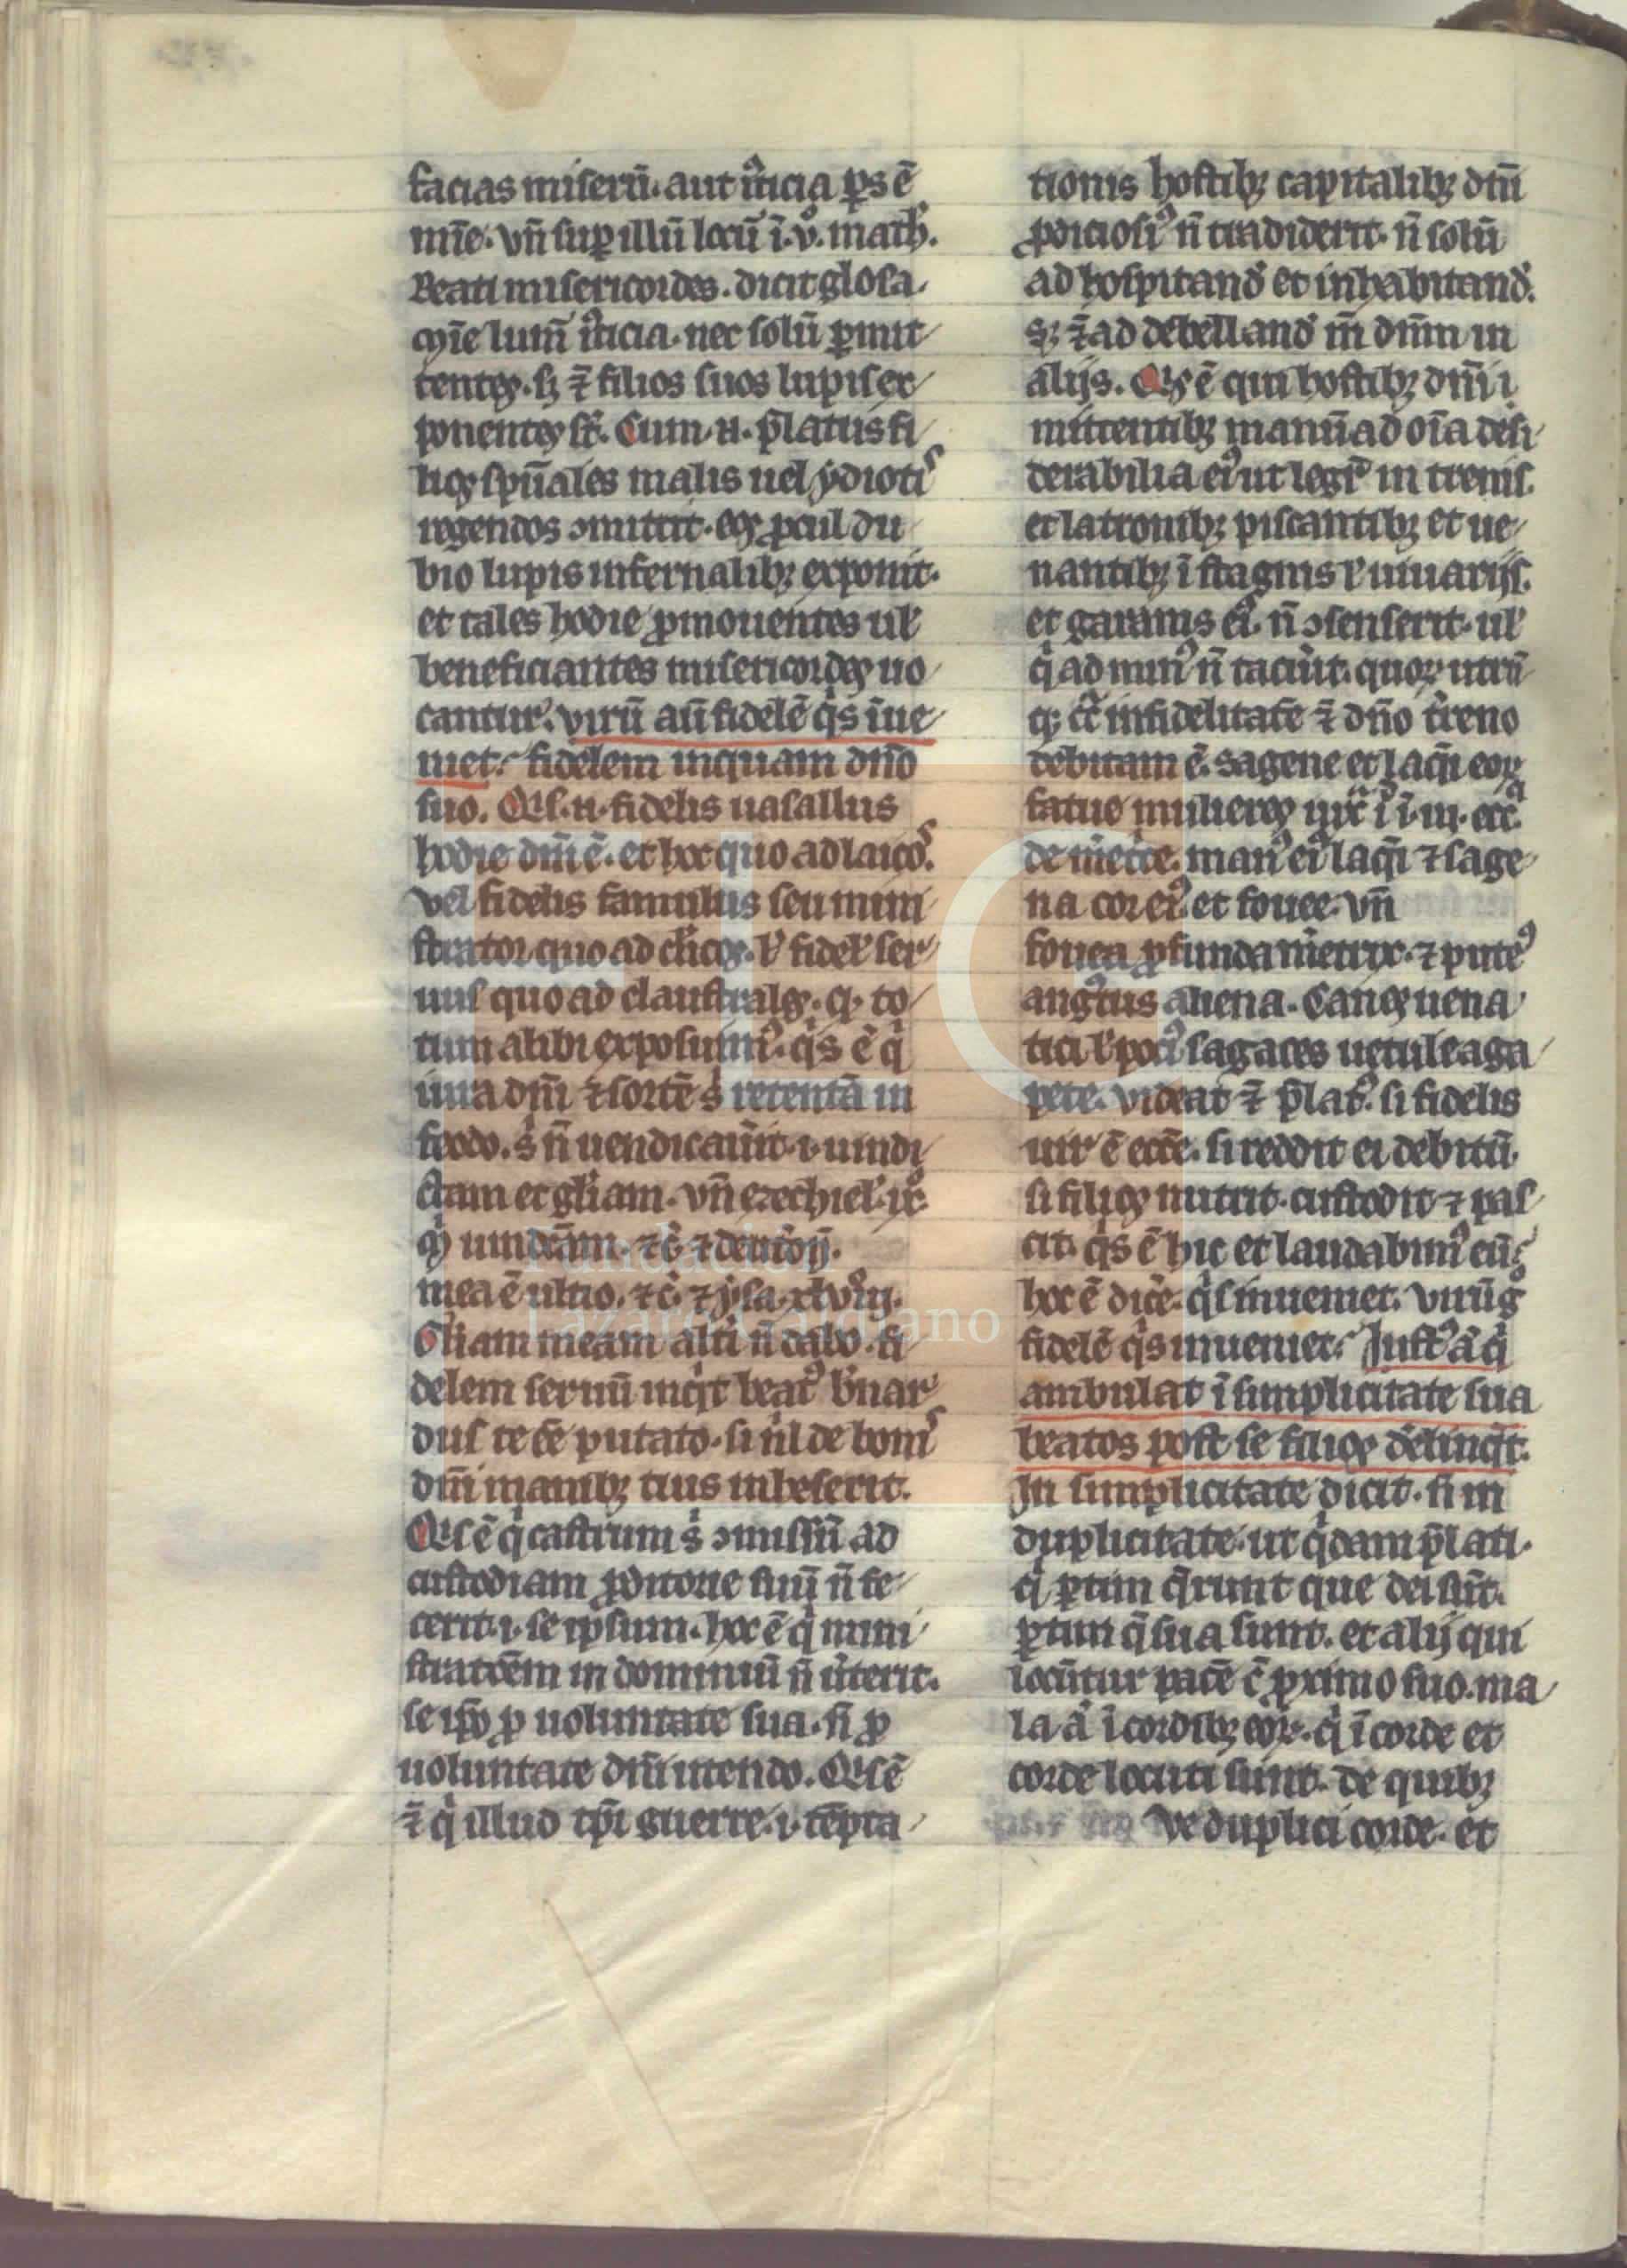 facias miserū. aut iн̃icia p̱s ē
mīe. vn̄ sup illū locū ī. v̊. math̓.
Beati misericordes. dicit glosa.
nec solū p̱mit
tentes. sꝫ ⁊̄ filios suos lupis ex
ponentes Cum .n. p̄latus fi
lios spūales malis uel ydiotis
regendos ꝯmittit. eos ꝓcul du
bio lupis infernalibꝫ exponit.
et tales hodie ꝓmouentes ul̓
beneficiantes misericordes uo
cantur. virū aū fidelē q̓s īue
niet. fidelem inquam dn̄o
suo. Qⁱs .n. fidelis uasallus
hodie dn̄i ē. et hoc quo ad laicos.
vel fidelis famulus seu mini
strator quo ad cl̓icos. ł fidel̓ ser
uus quo ad claustrales. q̱ to
tum alibi exposuim᷒. q̓s ē q̓
iura dn̄i ⁊ sortē s̓ retentā in
feodo. s̓ n̄ uendicau̓it .i. uindi
ctam et gl̓iam. vn̄ ezechiel̓. ix̊.
uindictam. ⁊c̓. ⁊ deut̓on̄.
mea ē ultio. ⁊c̓. ⁊ ysa. xlviij.
Gl̓iam meam alt̓i n̄ dabo. fi
delem seruū inq̓t beat᷒ b̓nar
dus te ēē putato. si nł de bonis
dn̄i manibꝫ tuis inheserit.
Qⁱs ē q̓ castrum s̓ ꝯmissū ad
custodiam ꝓditorie suū n̄ fe
cerit .i. se ipsum. hoc ē q̓ mini
strat̄oēm in dominiū n̄ u̓terit.
se ip̄o ꝓ uoluntate sua. n̄ ꝓ
uoluntate dn̄i utendo. Qⁱs ē
⁊̄ q̓ illud tp̄r guerre .i. tēpta
tionis hostibꝫ capitalibꝫ dn̄i
ꝓdiciosi᷒ n̄ tradiderit. n̄ solū
ad hospitand̓ et inhabitand̓.
sꝫ ⁊̄ ad debelland̓ dn̄m in
alijs. Qⁱs ē qui hostibꝫ dn̄i ī
mittentibꝫ manū ad oīa desi
derabilia ei᷒ ut legit᷑ in trenis.
et latronibꝫ piscantibꝫ et ue
nantibꝫ ī stagnis ł uiuarijs.
et garannis ei᷒. n̄ ꝯsenserit. ul̓
q̓ ad min᷒ n̄ tacu̓it. quoꝝ utrū
qꝫ infidelitatē ⁊̄ dn̄o t̓reno
debitam ē. sagene et laq̓i eoꝝ
fatue mulieres
de m̓et̓ce. man᷒ ei᷒ laq̓i ⁊ sage
na cor ei᷒. et fouee. vn̄
fouea ꝓfunda m̓etrix. ⁊ pute᷒
angustus aliena. Canes uena
tici ł poci᷒ sagaces uetule aga
pete. videat ⁊̄ p̄lat᷒. si fidelis
uir ē eccē. si reddit ei debitū.
si filios nutrit. custodit ⁊ pas
cit. q̓s ē hic et laudabim᷒ eū.
hoc ē dic̓e. q̓s inueniet. virū g̊
fidelē q̓s inueniet. Just᷒ aū q̓
ambulat ī simplicitate sua
beatos post se filios delinq̓t.
In simplicitate dicit. n̄ in
duplicitate. ut q̓dam p̄lati.
q̓ p̱tim q̄runt que dei sūt.
p̱tim q̄ sua sunt. et alij qui
locūtur pacē c̄ ꝓximo suo. ma
la aū ī cordibꝫ eoꝝ. q̓ ī corde et
corde locuti sunt. de quibꝫ
Ve duplici corde. et